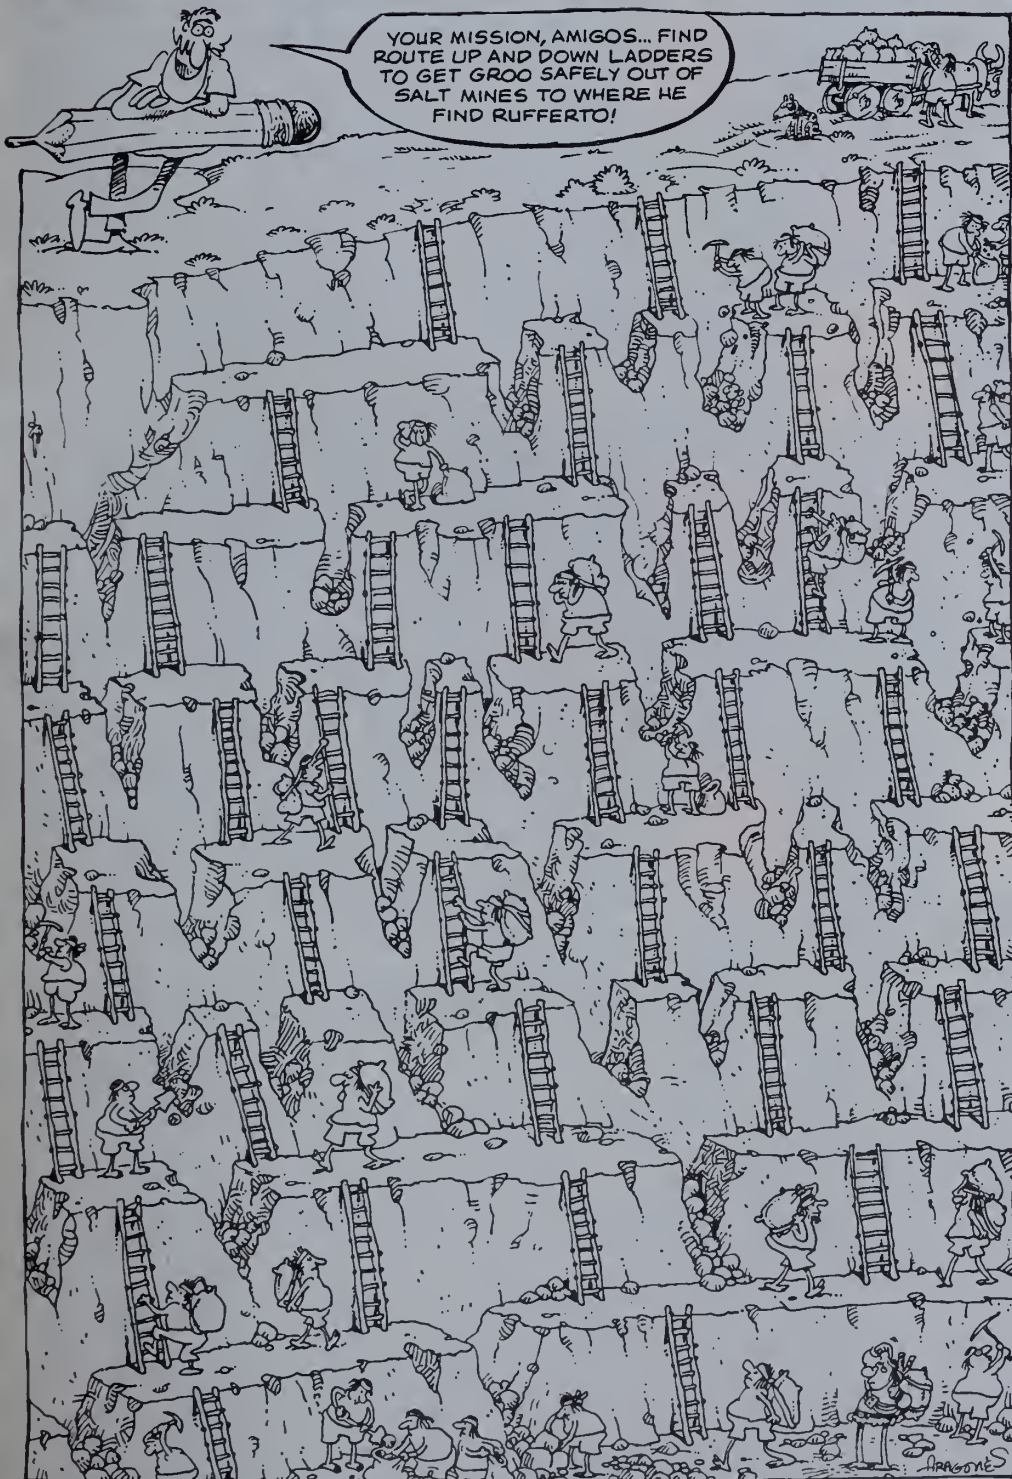 YOUR MISSION, AMIGOS... FIND
ROUTE UP AND DOWN LADDERS
TO GET GROO SAFELY OUT OF
SALT MINES TO WHERE HE
FIND RUFFERTO!
ARAGONES